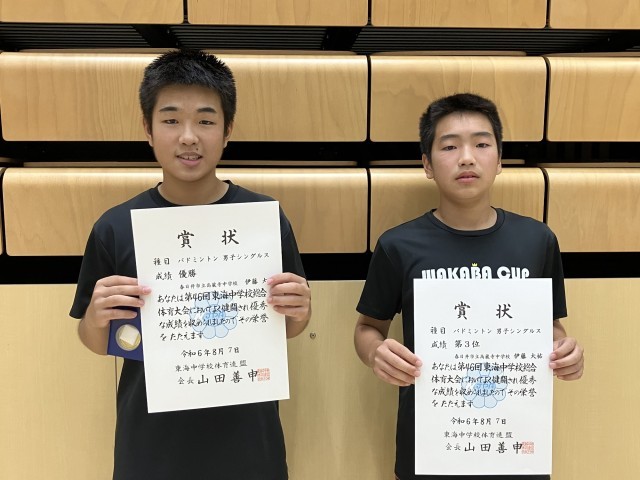 賞状
種目 バドミントン 男子シングルス
成績 優勝
春日井市立高蔵寺中学校 伊藤 大
あなたは第46回東海中学校総合
体育大会においてよく健闘され優秀
な成績を収められましたので その栄誉
を たたえます
令和6年8月7日
東海中学校体育連盟
会長 山田善申
WAKABA CUP
賞状
種目 バドミントン 男子シングルス
成績 第3位
春日井市立高蔵寺中学校 伊藤 大祐
あなたは第46回東海中学校総合
体育大会においてよく健闘され優秀
な成績を収められましたので その栄誉
を たたえます
令和6年8月7日
東海中学校体育連盟
会長 山田善申